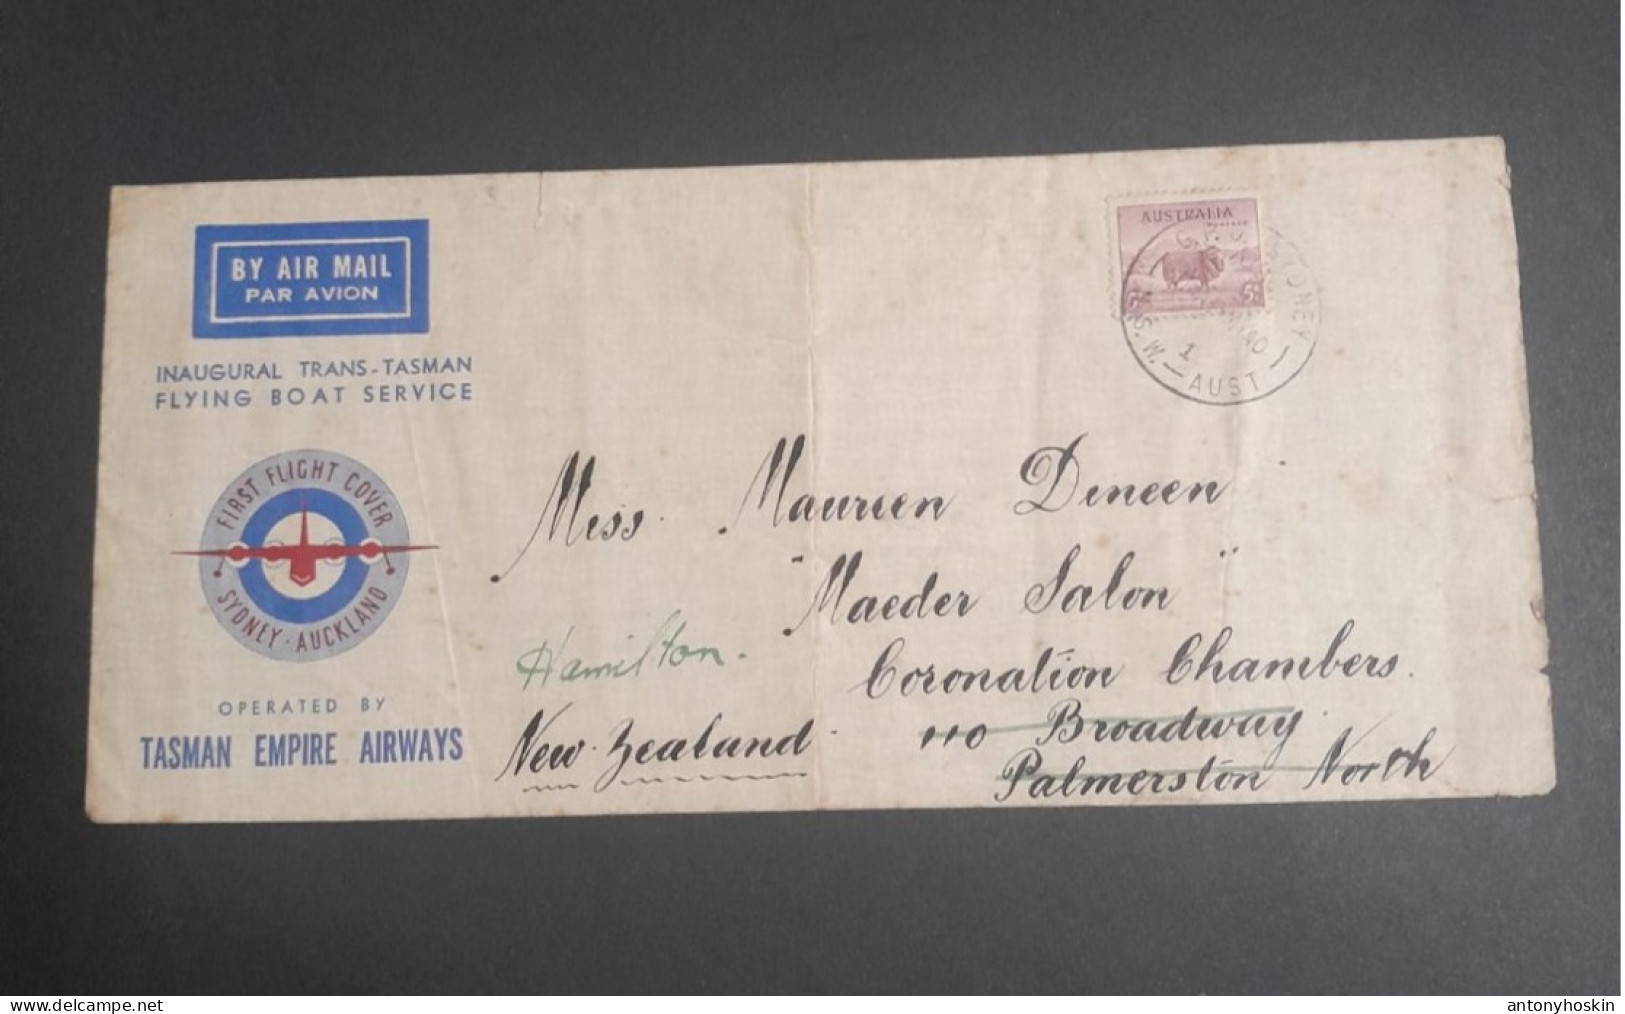 BY AIR MAIL
PAR AVION
INAUGURAL TRANS-TASMAN
FLYING BOAT SERVICE
FIRST FLIGHT COVER
SYDNEY - AUCKLAND
OPERATED BY
TASMAN EMPIRE AIRWAYS
AUSTRALIA
POSTAGE
5D
G.P.O. SYDNEY
1
40
N.S.W. — AUST —
Miss. Maureen Dineen
"Maeder Salon"
Hamilton.
Coronation Chambers.
New Zealand.
110 Broadway.
Palmerston North
Delcampe.net
antonyhoskin